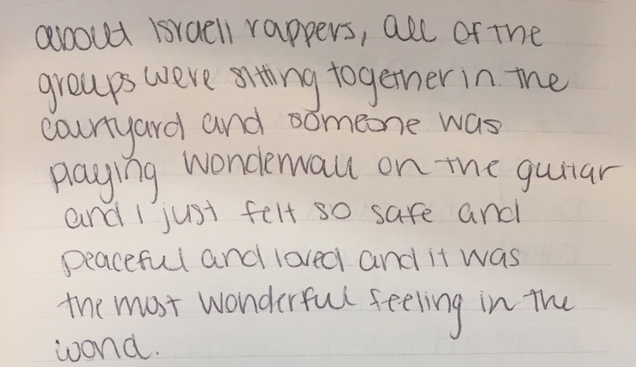 about Israeli rappers, all of the
groups were sitting together in the
courtyard and someone was
playing wonderwall on the guitar
and I just felt so safe and
peaceful and loved and it was
the most wonderful feeling in the
world.